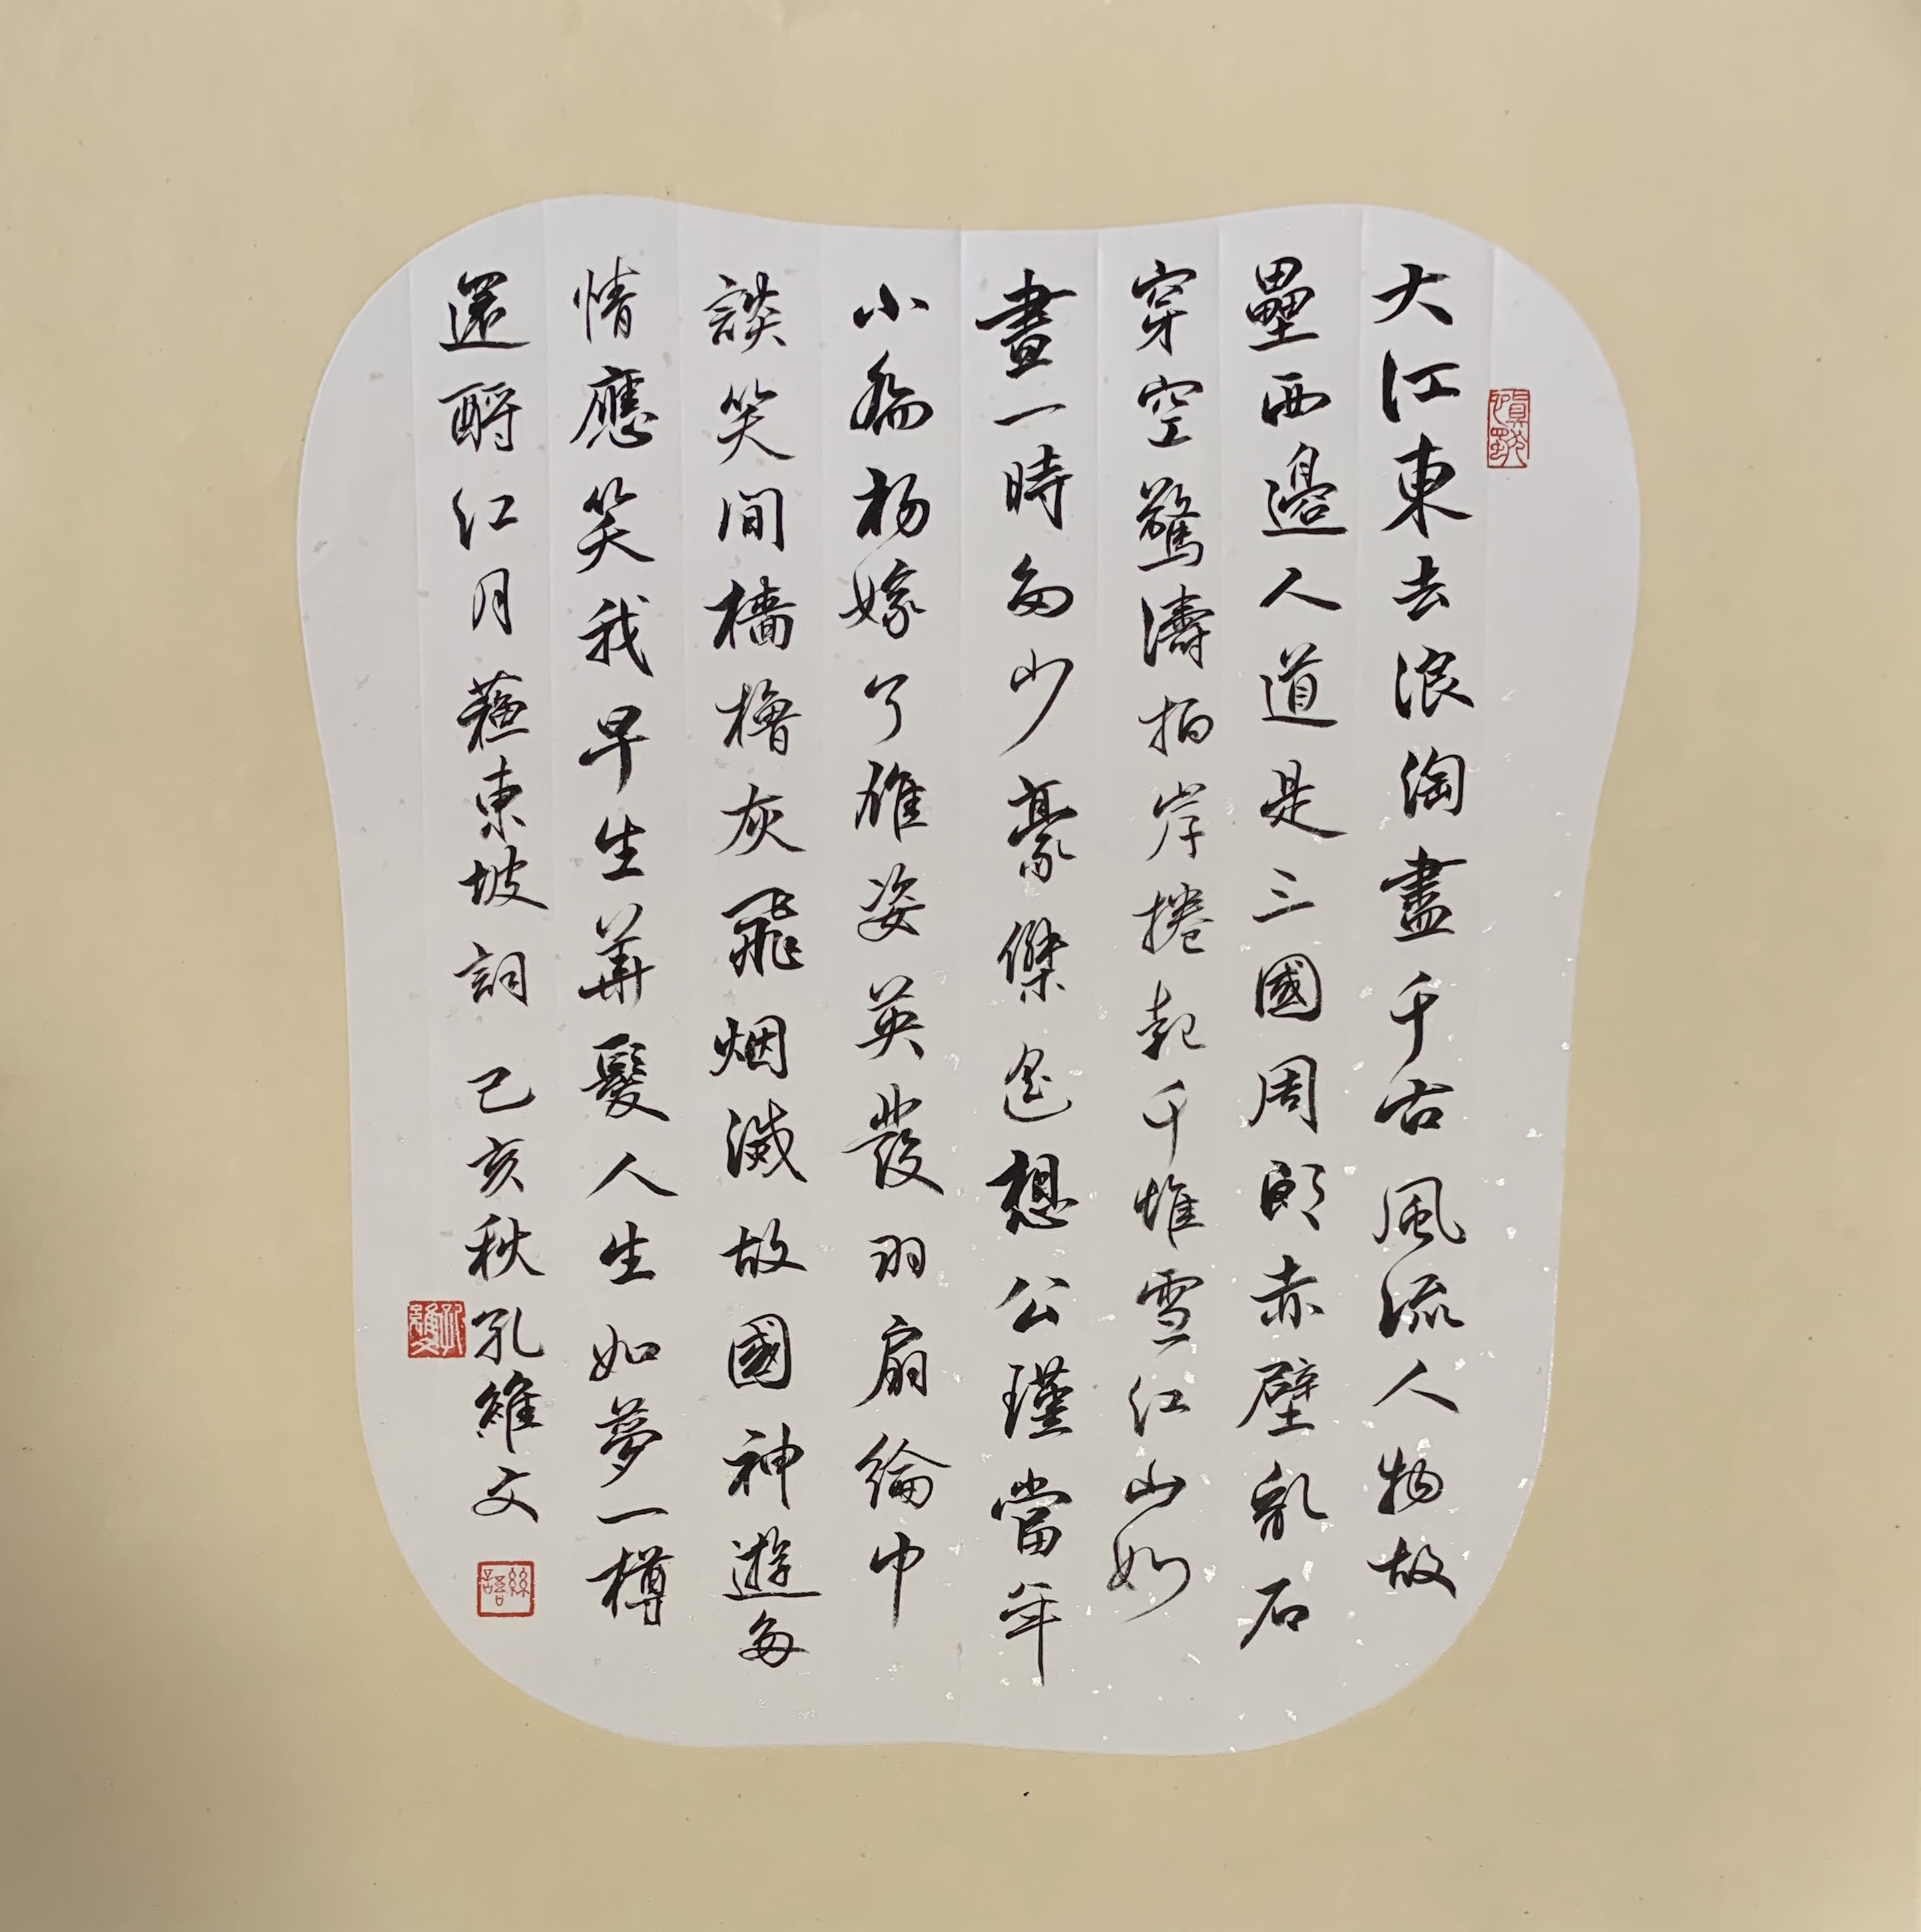 大江東去浪淘盡千古風流人物故
壘西邊人道是三國周郎赤壁亂石
穿空驚濤拍岸捲起千堆雪江山如
畫一時多少豪傑遙想公瑾當年
小喬初嫁了雄姿英發羽扇綸巾
談笑間檣櫓灰飛烟滅故國神遊多
情應笑我早生華髮人生如夢一樽
還酹江月蘇東坡詞己亥秋孔維文